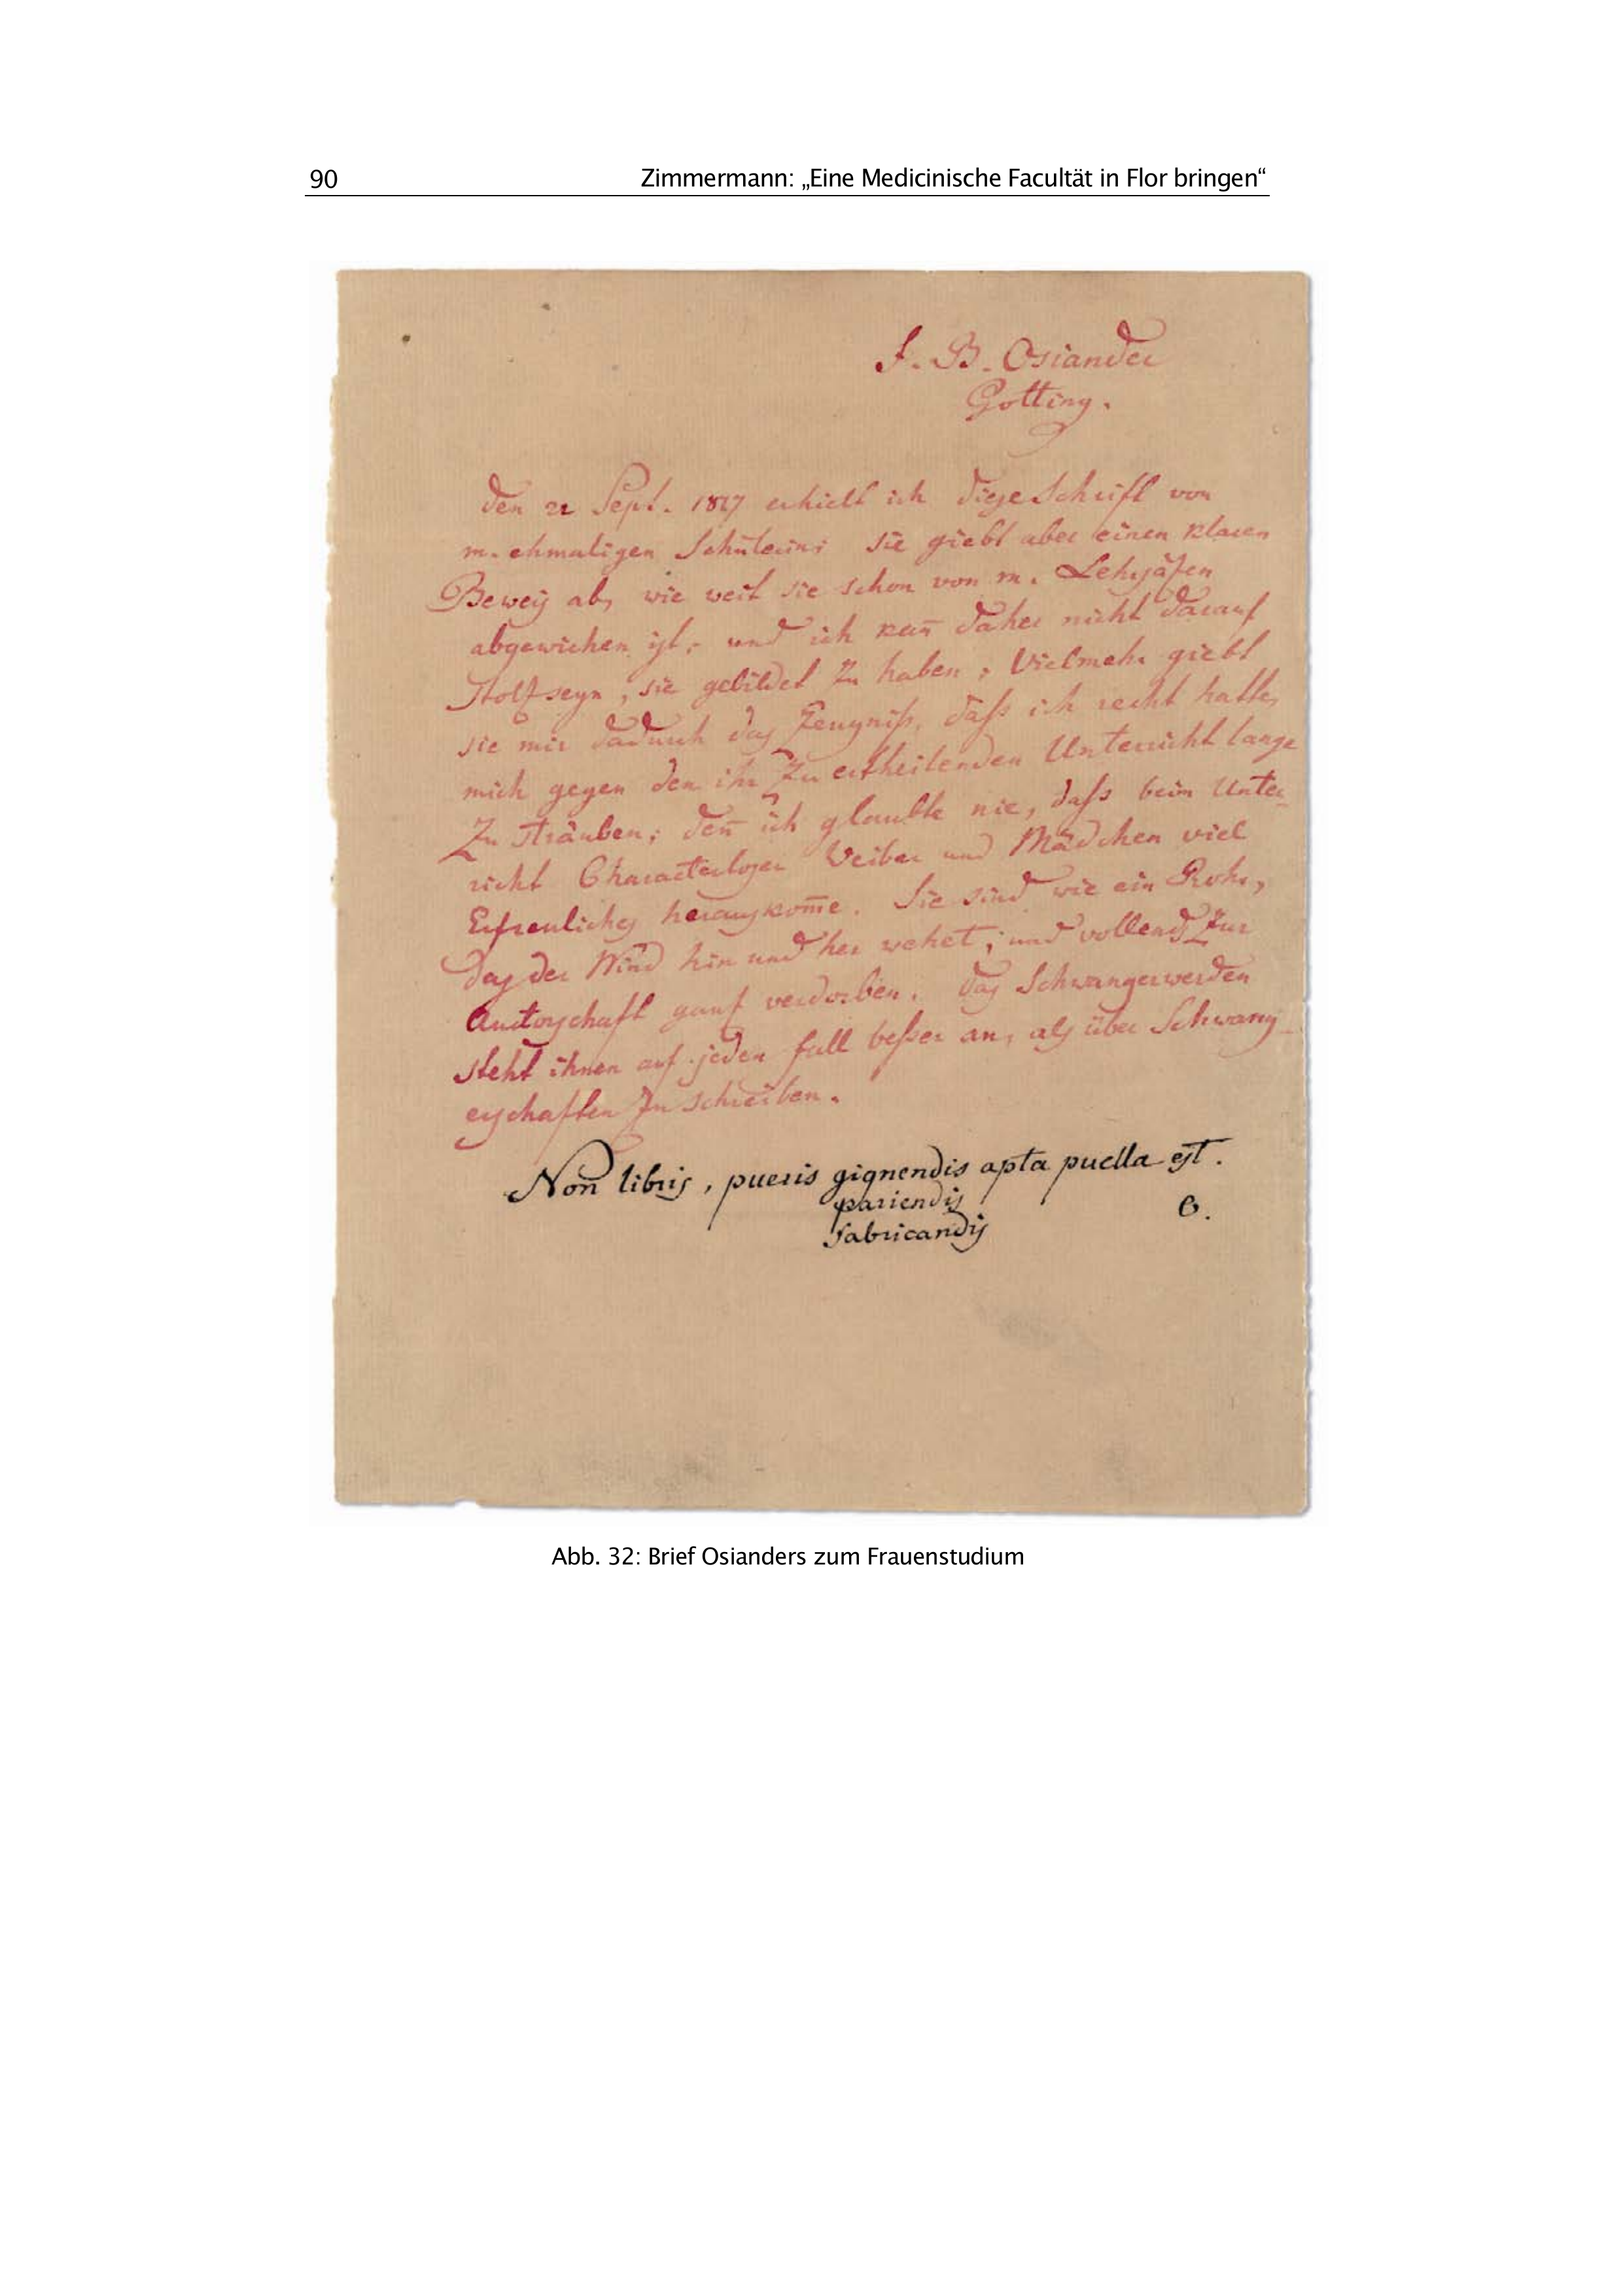 90 Zimmermann: „Eine Medicinische Facultät in Flor bringen“
F. B. Osiander
Gotting.
Den 22 Sept. 1817 erhielt ich diese Schrift von
m. ehmaligen Schülerin; sie giebt aber einen klaren
Beweis ab, wie weit sie schon von m. Lehrsäzen
abgewichen ist; und ich kan̄ daher nicht darauf
stolz seyn, sie gebildet zu haben; Vielmehr giebt
sie mir dadurch das Zeugniß, daſs ich recht hatte,
mich gegen den ihr zu ertheilenden Unterricht lange
zu sträuben; den̄ ich glaubte nie, daſs beim Unter-
richt Characterloser Weiber und Mädchen viel
Erfreuliches herauskom̄e. Sie sind wie ein Rohr,
das der Wind hin und her wehet; und vollends zur
Auctorschaft ganz verdorben. Das Schwangerwerden
steht ihnen auf jeden fall beſser an, als über Schwang-
erschaften zu schreiben.
Non libris, pueris gignendis apta puella est.
pariendis
fabricandis
O.
Abb. 32: Brief Osianders zum Frauenstudium